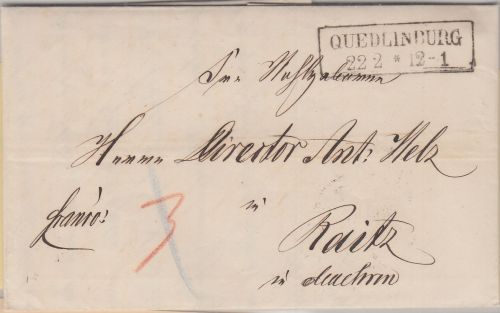 QUEDLINBURG
22 2 * 12-1
Sr. Wohlgeboren
Herrn Director Ant: Welz
franco:
3
in
Raitz
in Maehren